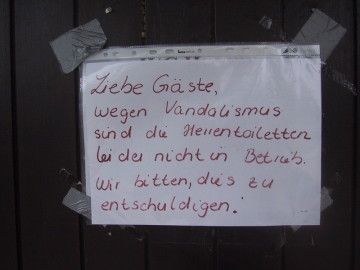 Liebe Gäste,
wegen Vandalismus
sind die Herrentoiletten
leider nicht in Betrieb.
Wir bitten, dies zu
entschuldigen!